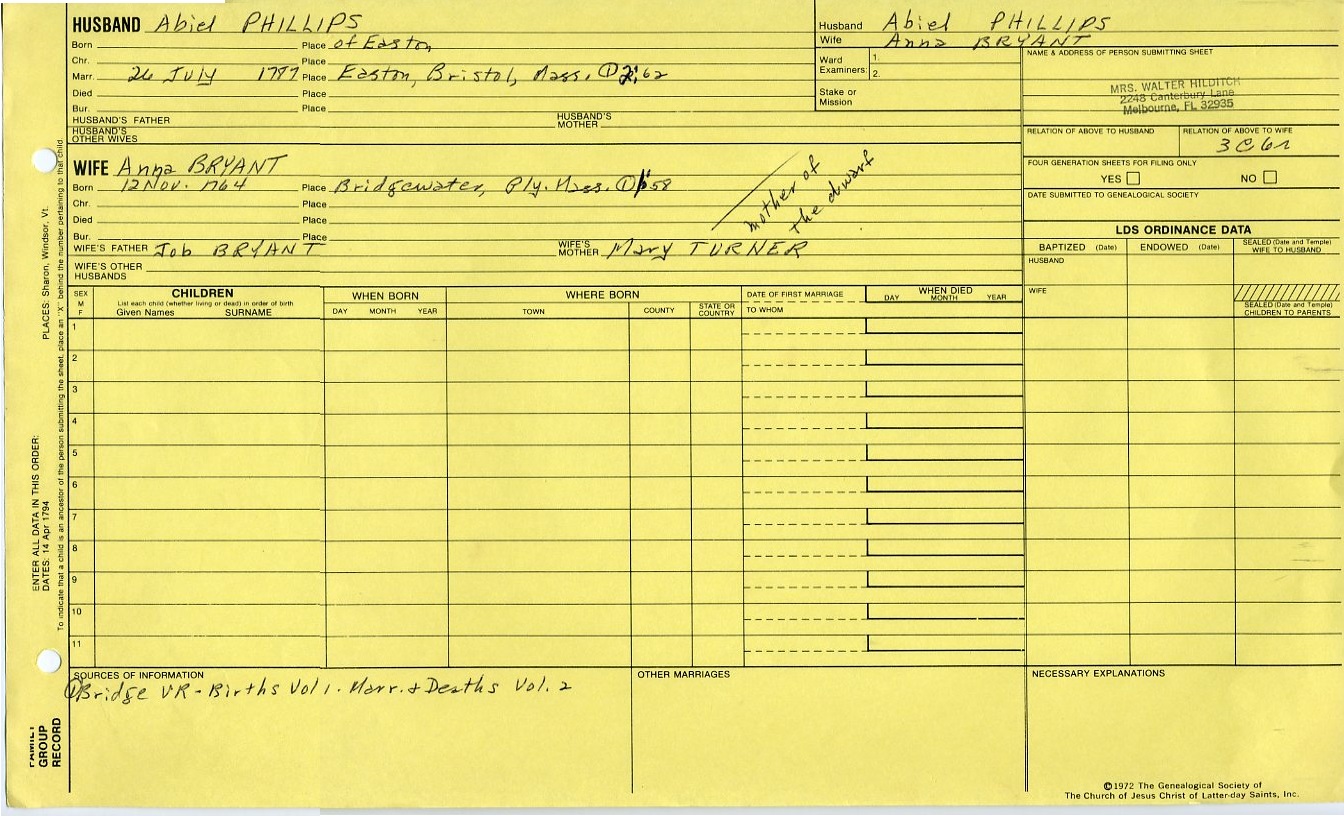 HUSBAND Abiel PHILLIPS
Born Place of Easton
Chr. Place
Marr. 26 July 1787 Place Easton, Bristol, Mass. ① 2:62
Died Place
Bur. Place
HUSBAND'S FATHER HUSBAND'S MOTHER
HUSBAND'S OTHER WIVES
Husband Abiel PHILLIPS
Wife Anna BRYANT
Ward Examiners: 1. 2.
Stake or Mission
NAME & ADDRESS OF PERSON SUBMITTING SHEET
MRS. WALTER HILDITCH
2248 Canterbury Lane
Melbourne, FL 32935
RELATION OF ABOVE TO HUSBAND RELATION OF ABOVE TO WIFE
3C6r
FOUR GENERATION SHEETS FOR FILING ONLY
YES NO
DATE SUBMITTED TO GENEALOGICAL SOCIETY
WIFE Anna BRYANT
Born 12 Nov. 1764 Place Bridgewater, Ply. Mass. ① 58
Chr. Place
Died Place
Bur. Place
mother of
the dwarf
WIFE'S FATHER Job BRYANT WIFE'S MOTHER Mary TURNER
WIFE'S OTHER HUSBANDS
LDS ORDINANCE DATA
BAPTIZED (Date) ENDOWED (Date) SEALED (Date and Temple) WIFE TO HUSBAND
HUSBAND
WIFE
SEALED (Date and Temple) CHILDREN TO PARENTS
SEX M F
CHILDREN
List each child (whether living or dead) in order of birth
Given Names SURNAME
WHEN BORN
DAY MONTH YEAR
WHERE BORN
TOWN COUNTY STATE OR COUNTRY
DATE OF FIRST MARRIAGE
TO WHOM
WHEN DIED
DAY MONTH YEAR
1
2
3
4
5
6
7
8
9
10
11
SOURCES OF INFORMATION
① Bridge VR - Births Vol 1. Marr. & Deaths Vol. 2
OTHER MARRIAGES
NECESSARY EXPLANATIONS
©1972 The Genealogical Society of
The Church of Jesus Christ of Latter-day Saints, Inc.
ENTER ALL DATA IN THIS ORDER:
DATES: 14 Apr 1794 PLACES: Sharon, Windsor, Vt.
To indicate that a child is an ancestor of the person submitting the sheet, place an "X" behind the number pertaining to that child.
FAMILY
GROUP
RECORD